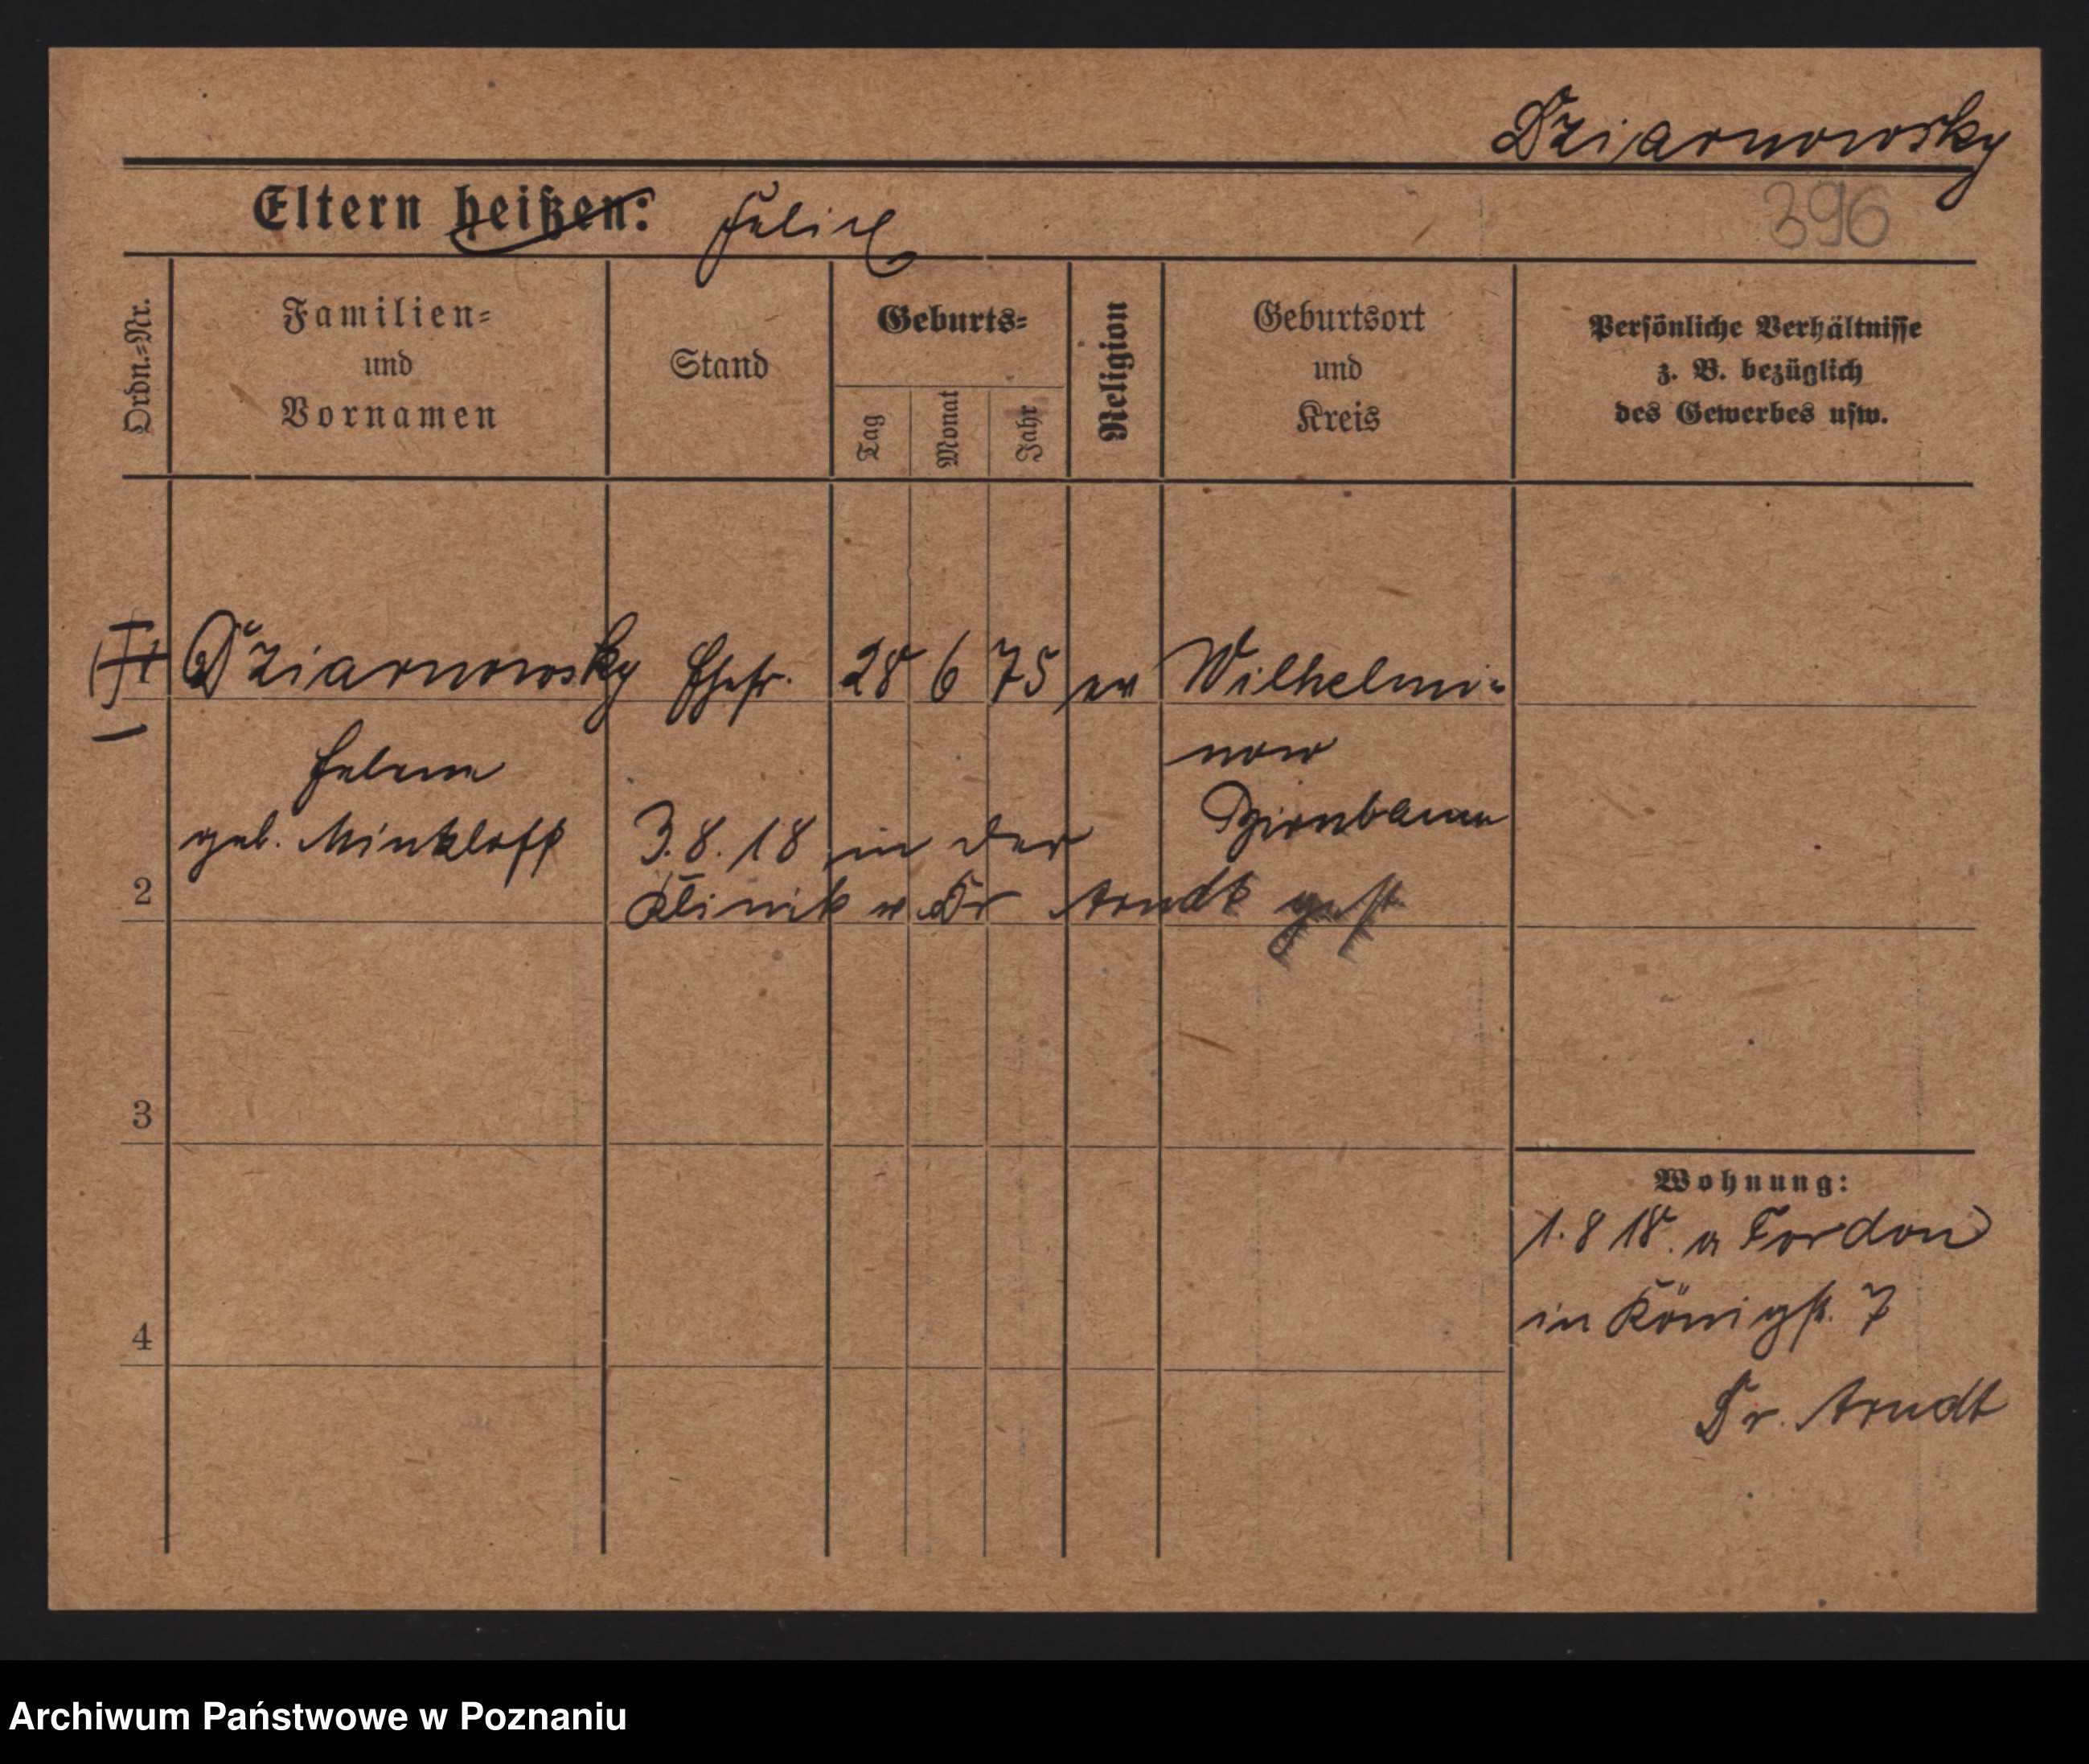 Dziarnowsky
396
Eltern heißen: Felix
Ordn.=Nr.
Familien=
und
Vornamen
Stand
Geburts=
Tag
Monat
Jahr
Religion
Geburtsort
und
Kreis
Persönliche Verhältnisse
z. B. bezüglich
des Gewerbes usw.
Dziarnowsky Ehefr. 28 6 75 ev Wilhelmi=
now
Helene
geb.
3.8.18 in der
Klinik v. Dr Arndt gest
2
3
4
Wohnung:
1.8 18. a Fordon
in Königst. 7
Dr. Arndt
Archiwum Państwowe w Poznaniu